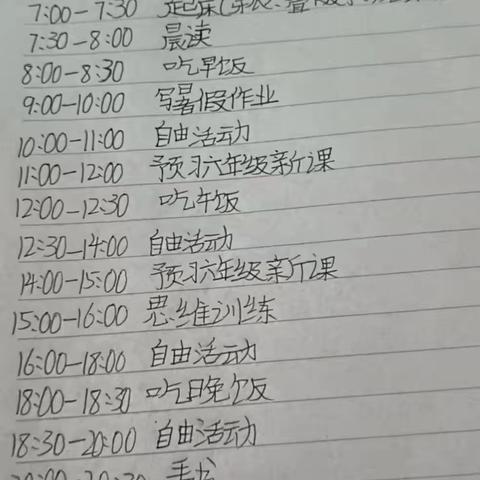 7:00-7:30 起床(穿衣、叠被子
7:30-8:00 晨读
8:00-8:30 吃早饭
9:00-10:00 写暑假作业
10:00-11:00 自由活动
11:00-12:00 预习六年级新课
12:00-12:30 吃午饭
12:30-14:00 自由活动
14:00-15:00 预习六年级新课
15:00-16:00 思维训练
16:00-18:00 自由活动
18:00-18:30 吃晚饭
18:30-20:00 自由活动
20:00-20:30